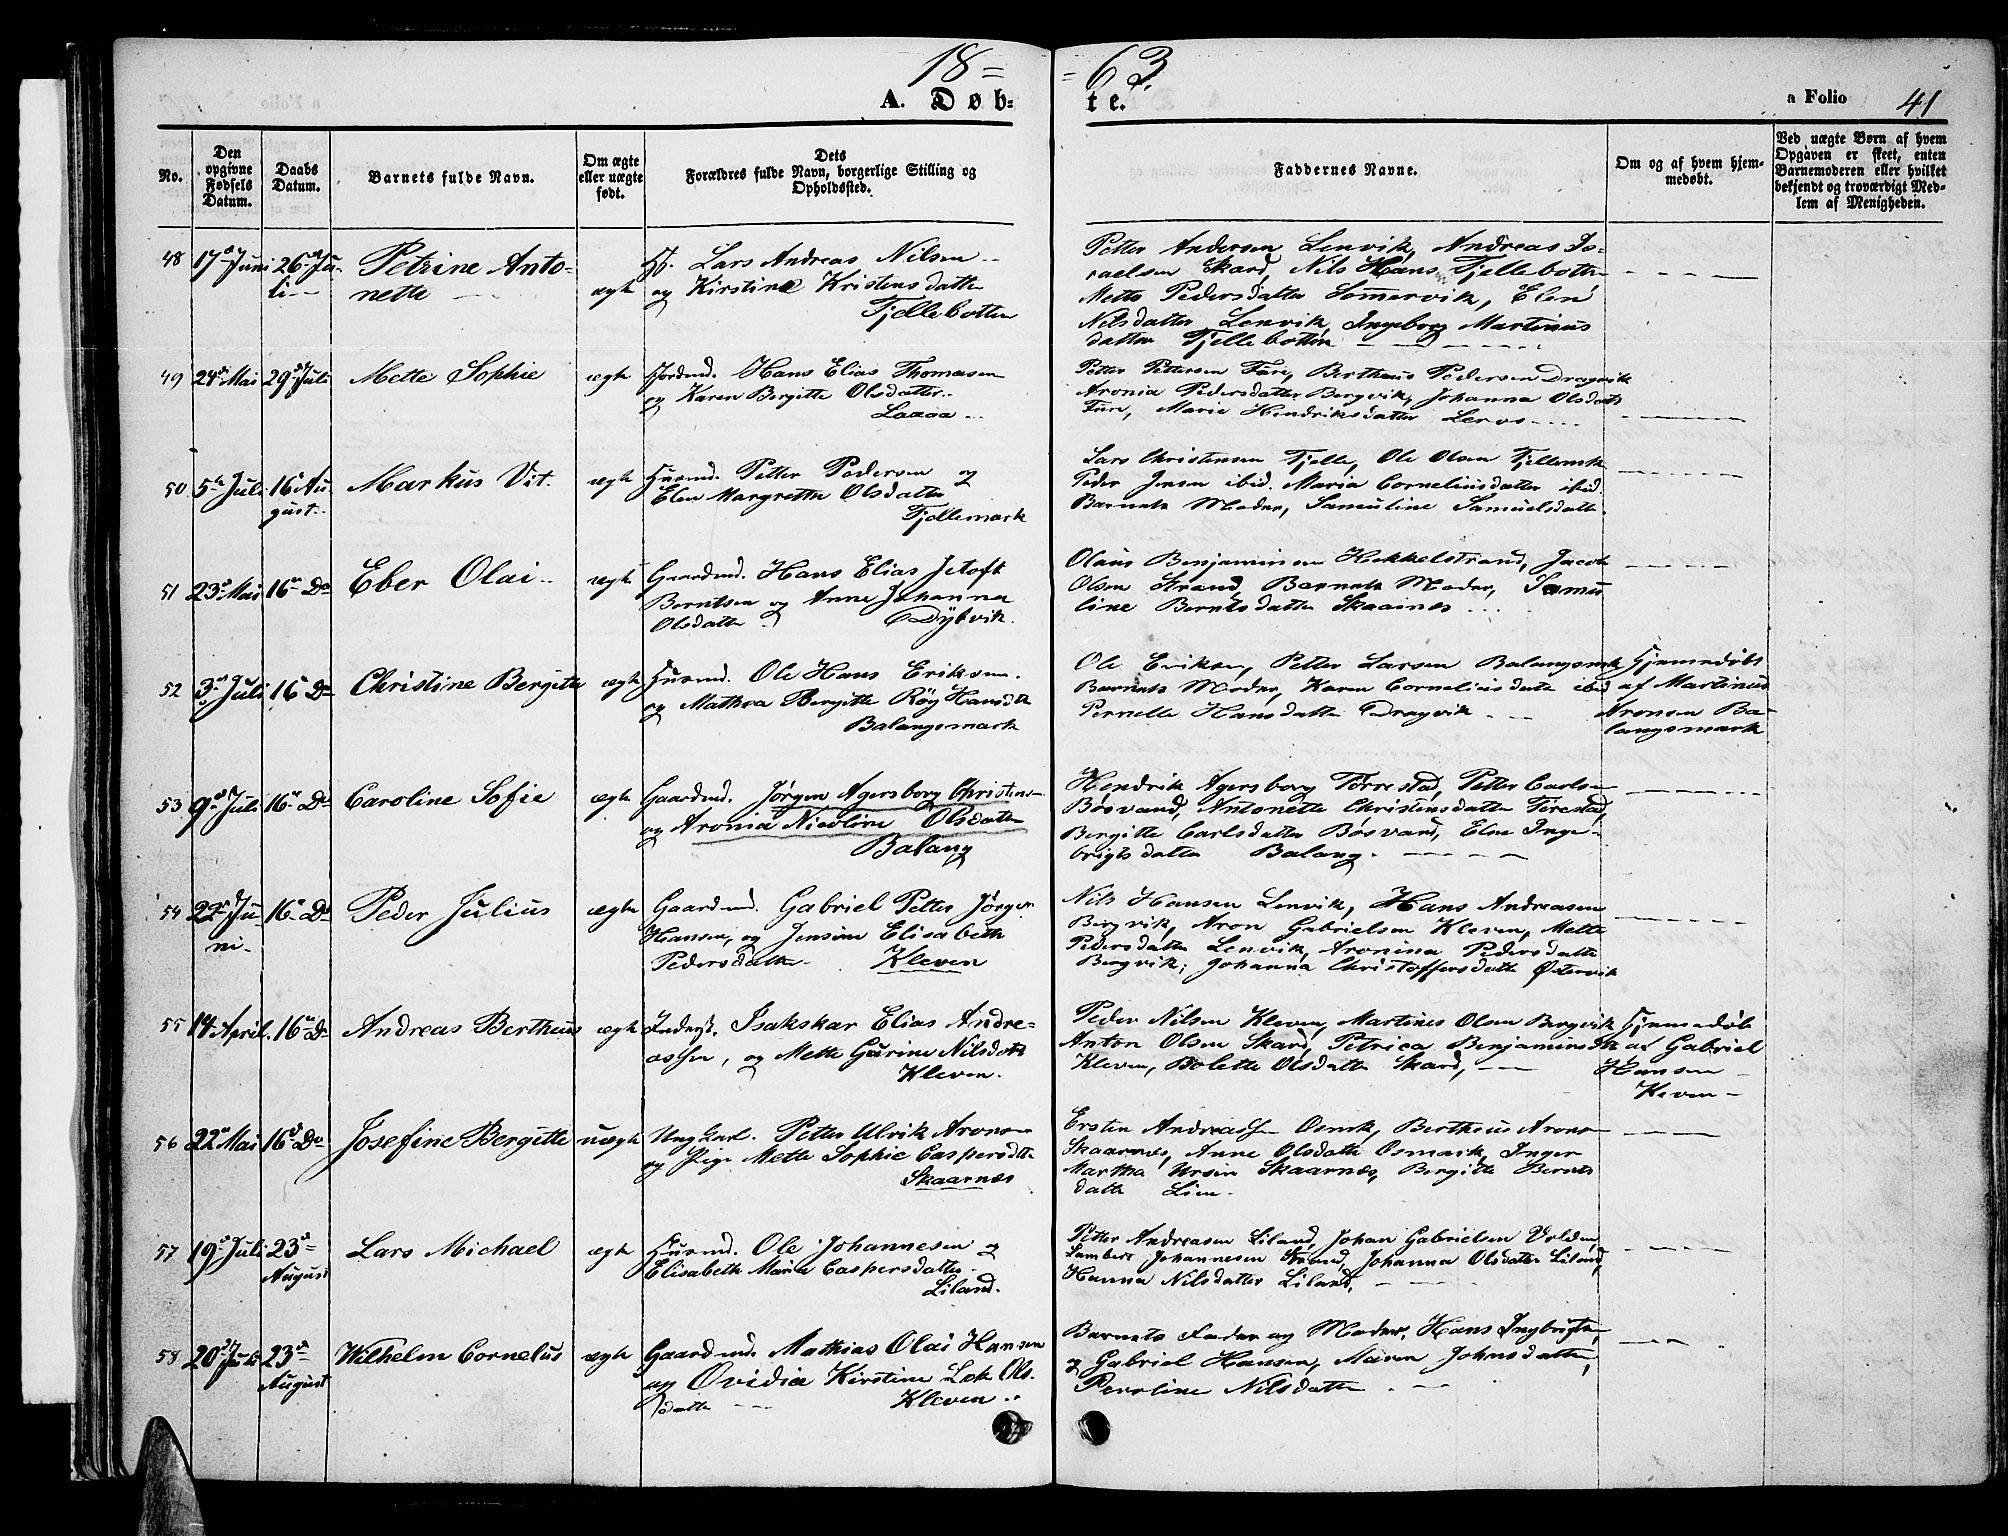 18= =63.
A. Døb= te.
a Folio 41
No.
Den opgivne Fødsels Datum.
Daabs Datum.
Barnets fulde Navn.
Om ægte eller uægte født.
Dets Forældres fulde Navn, borgerlige Stilling og Opholdssted.
Faddernes Navne.
Om og af hvem hjemmedøbt.
Ved uægte Børn af hvem Opgaven er skeet, enten Barnemoderen eller hvilket bekjendt og troværdigt Medlem af Menigheden.
48 17de Juni 26de Ju-
li
Petrine Anto-
nette
ægte
Lars Andreas Nilsen
og Kirstine Kristensdatter
Fjellebotten
Petter Andersen Lenvik, Andreas Is-
raelsen Skard, Nils Hans. Fjellebotten
Mette Pedersdatter Sommervik, Elen
Nilsdatter Lenvik, Ingeborg Martinus
datter Fjellebotten
49 24de Mai 29de Juli
Mette Sophie
ægte
Hans Elias Thomasen
og Karen Bergitte Olsdatter
Laxaa
Petter Pettersen Fure, Bertheus Pedersen Dragvik
Aronia Pedersdatter Bergvik, Johanna Olsdatt
Fure, Marie Hendriksdatter
50 5te Juli 16 Au-
gust
Markus Vit.
ægte
Husmd. Petter Pedersen og
Elen Margrethe Olsdatter
Fjellemark
Lars Christensen Fjelle, Ole Olsen Fjellemk
Peder Jnsen ibid. Maria Corneliusdatter ibid.
Barnets Moder, Samuline Samuelsdatter
51 23de Mai 16de Do
Eber Olai
ægte
Gaardmd. Hans Elias Jetoft
Berntsen og Anne Johanna
Olsdatter Dybvik.
Olaus Benjaminsen Hekkelstrand, Jacob
Olsen Strand, Barnets Moder, Samu
line Berntsdatter Skaanes
52 3de Juli 16 Do
Christine Bergitte
ægte
Husmd. Ole Hans Eriksen.
og Mathea Bergitte Røy Hansdtr
Balangsmark
Ole Eriksen, Petter Larsen Balangsmk
Barnets Moder, Karen Corneliusdatter ibid
Pernelle Hansdatter Dragvik
Hjemmedøbt
af Martinus
Aronsen Ba-
langsmark
53 9de Juli 16de Do
Caroline Sofie
ægte
Gaardmd. Jørgen Agersborg Christens
og Aronia Nicoline Olsdatter
Balang
Hendrik Agersborg Tørrestad, Petter Carlsen
Bøsvand, Antonette Christensdatter Tørestad,
Bergitte Carlsdatter Bøsvand, Elen Inge-
brigtsdatter Balang.
54 22de Ju-
ni.
16de Do
Peder Julius
ægte
Gaardmd. Gabriel Petter Jørgen
Hansen, og Jensine Elisabeth
Pedersdatter Kleven
Nils Hansen Lenvik, Hans Andreasen
Bergvik, Aron Gabrielsen Kleven, Mette
Pedersdatter Lenvik, Aronina Pedersdatter
Bergvik; Johanna Christoffersdatter Østervik
55 14 April. 16de Do
Andreas Bertheus
ægte
Inderst. Isakskar Elias Andre-
assen, og Mette Gurine Nilsdatt
Kleven.
Peder Nilsen Kleven, Martines Olsen Bergvik
Anton Olsen Skard, Petrica Benjaminsdtr
Kleven, Bolette Olsdatter Skard,
Hjemmedøbt
af Gabriel
Hansen
Kleven
56 22de Mai 16de Do
Josefine Bergitte
uægte
Ung Karl. Petter Ulrik Arons
og Pige Mette Sophie Caspersdtr
Skaarnæs
Ersten Andreassen Osmk, Bertheus Arons
Skaarnæs, Anne Olsdatter Osmark, Inger
Martha Ursin Skaarnæs, Bergitte Bernts
datter Lien
57 19de Juli 23de
August
Lars Michael
ægte
Husmd. Ole Johannesen og
Elisabeth Maria Caspersdatter
Liland.
Petter Andreasen Liland, Johan Gabrielsen Volden,
Lambert Johannesen Strand, Johanna Olsdatter Liland,
Hanna Nilsdatter Liland,
58 20de Juli 23de
August
Wilhelm Cornelius
ægte
Gaardmd. Mathias Olai Hansen
og Ovidia Kirstine Lok Ols-
datter Kleven
Barnets Fader og Moder, Hans Ingbrigts,
og Gabriel Hansen, Maren Johnsdatter,
Peroline Nilsdatter